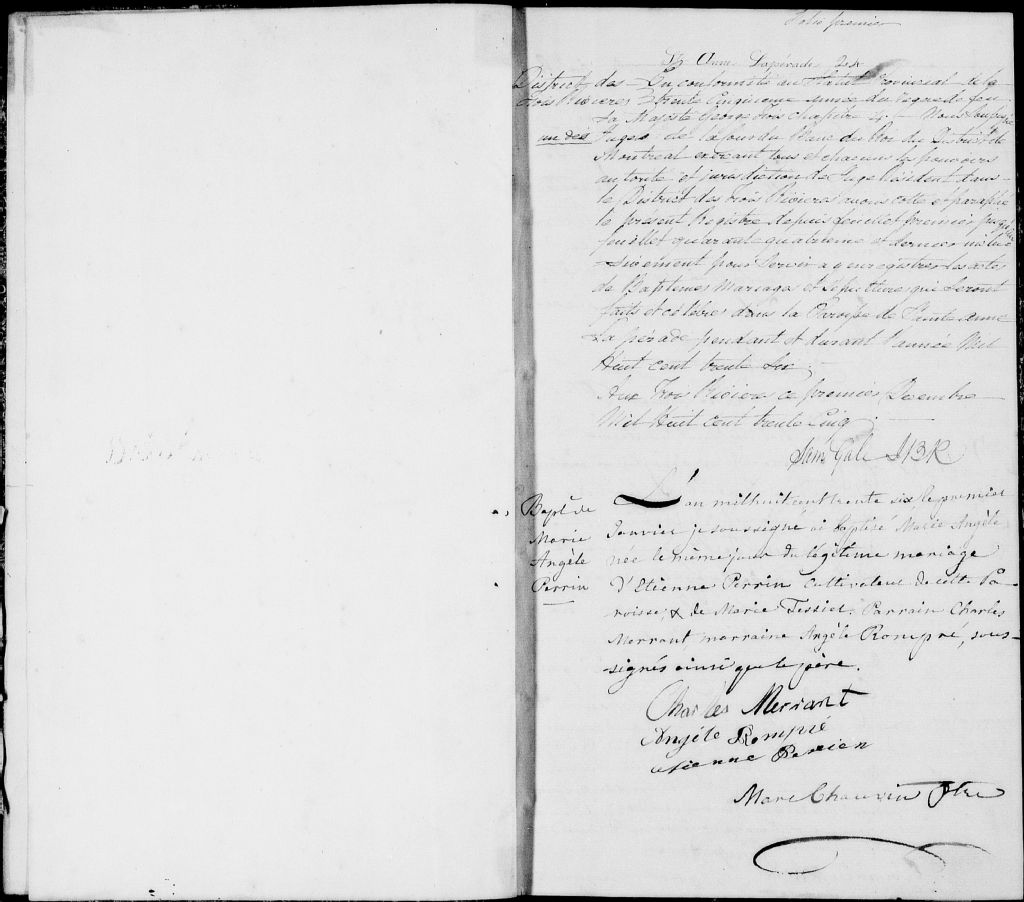 Folio premier
St Anne Lapérade 24
District des En conformité au Statut Provincial de la
Trois Rivieres trente Cinquieme année du regne de feu
Sa Majesté George Trois chapitre 4 Nous Soussigné
un des Juges de la Cour du Banc du Roi du District de
Montreal exercant tous et chacuns les pouvoirs
autorité et jurisdiction de Juge Resident dans
le District des Trois Rivieres avons coté et paraphé
le present Registre depuis feuillet premier jusqu'au
feuillet quarante quatrieme et dernier inclu
-sivement pour servir a y enregistrer les actes
de Baptêmes Mariages et Sepultures qui seront
faits et célébrés dans la Paroisse de Sainte Anne
La pérade pendant et durant l'année Mil
Huit cent trente Six
Aux Trois Rivieres ce premier Decembre
Mil Huit Cent trente Cinq
Sam Gale J B R
Bapt. de L'an mil huit cent trente six, le premier
Marie Janvier je soussigné ai baptisé Marie Angèle
Angèle née le même jour du légitime mariage
Perrin d'Etienne Perrin Cultivateur de cette Pa-
roisse, & de Marie Tessier. Parrain Charles
Merrant marraine Angèle Rompré, sous-
-signés ainsi que le père.
Charles Merrant
Angèle Rompré
etienne Perrien
Marc Chauvin Ptre